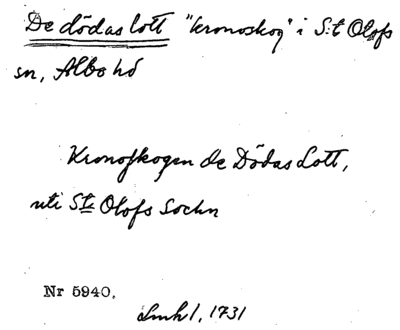 De dödas lott "kronoskog" i S:t Olofs
sn, Albo hd
Kronoskogen de Dödas Lott,
uti St Olofs Sochn
Nr 5940,
Lmhl, 1731